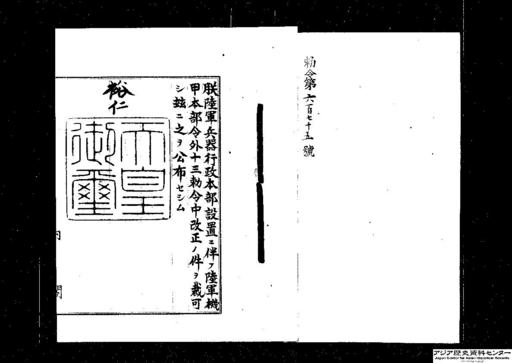 勅令第六百七十五號
朕陸軍兵器行政本部設置ニ伴フ陸軍機
甲本部令外十三勅令中改正ノ件ヲ裁可
シ茲ニ之ヲ公布セシム
裕仁
天皇
御璽
内閣
アジア歴史資料センター
Japan Center for Asian Historical Records